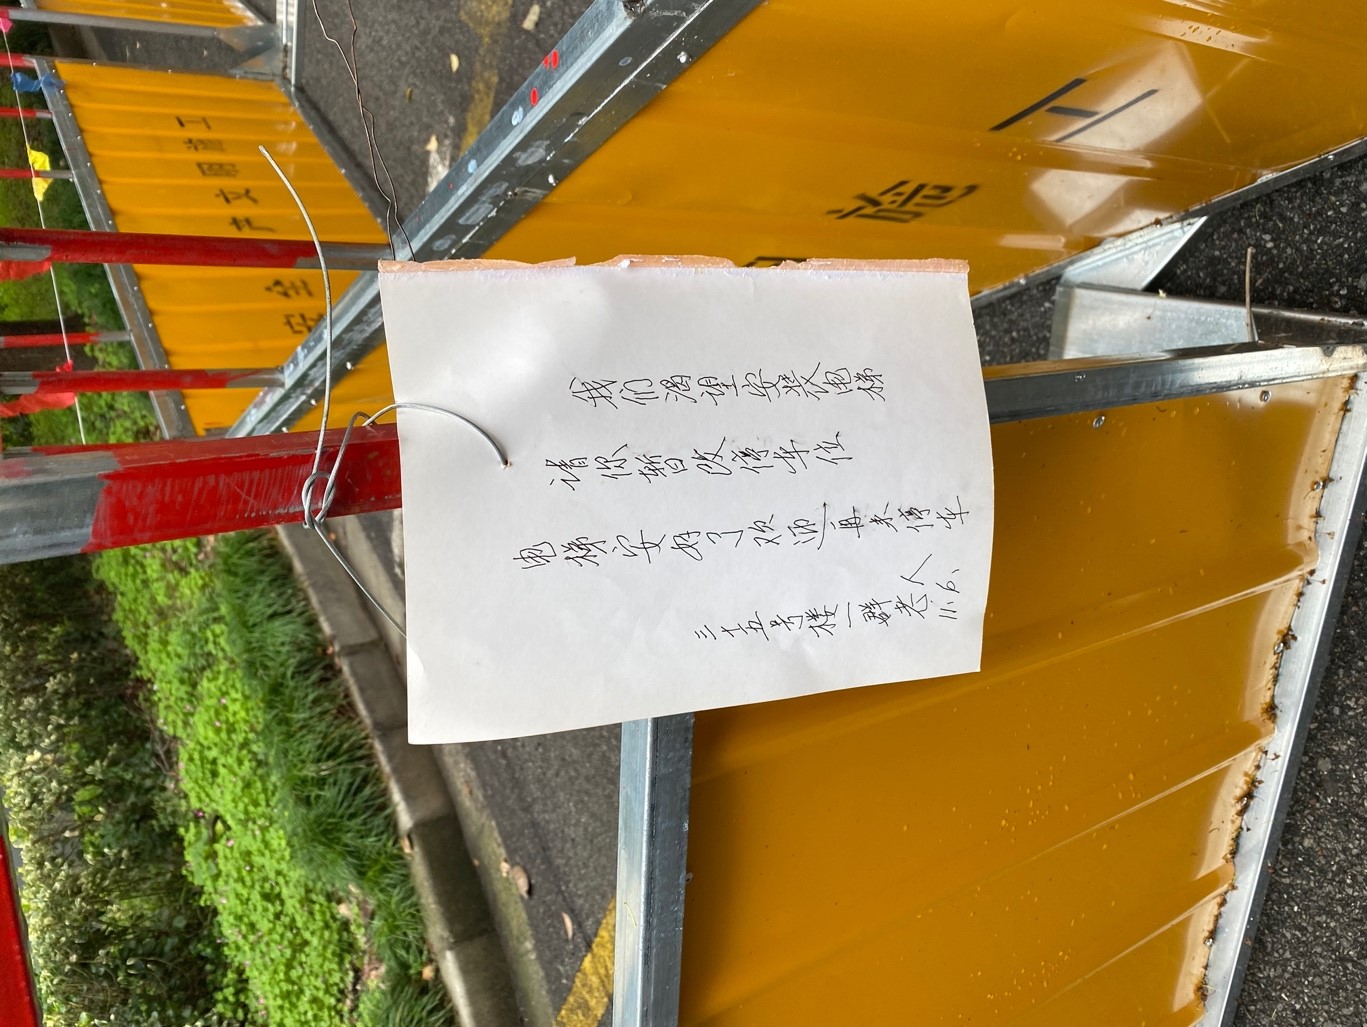 我们渴望安装电梯
请你暂改停车位
电梯安好了欢迎再来停车
三十五号楼一群老人
11.6.
安全
文明施工
施工